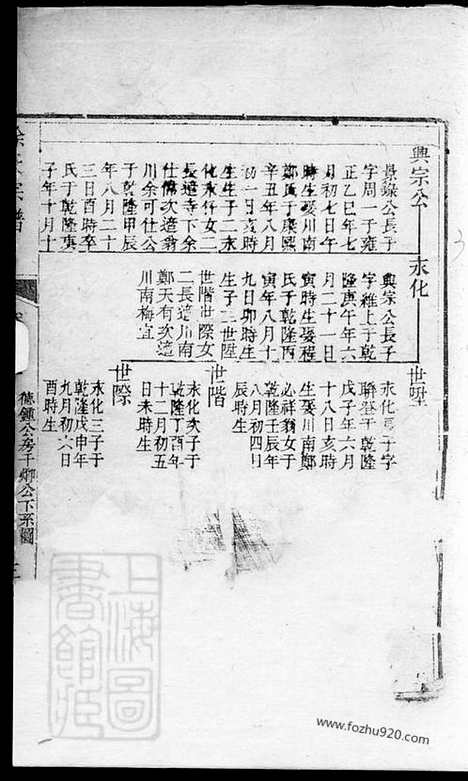 興宗公
景錄公長子
字周一于雍
正乙巳年七
月初七日午
時生娶川南
鄭氏于康熙
辛丑年八月
初一日亥時
生生子二永
化永作女二
長適于下余
仕儒次適翁
川余可仕公
于乾隆甲辰
年八月二十
三日酉時卒
氏于乾隆庚
子年十月十
永化
興宗公長子
字維上于乾
隆庚午年六
月二十一日
寅時生娶程
氏于乾隆丙
寅年八月十
九日卯時生
生子三世陞
世階世際女
二長適川南
鄭天有次適
川南梅宜
世陞
永化長子字
聯登于乾隆
戊子年六月
十八日亥時
生娶川南鄭
必祥翁女于
乾隆壬辰年
八月初四日
辰時生
世階
永化次子于
乾隆丁酉年
十二月初五
日未時生
世際
永化三子于
乾隆戊申年
九月初六日
酉時生
徐氏宗譜
德鍾公房千鄉公下系圖
上海圖
書館藏
www.fozhu920.com